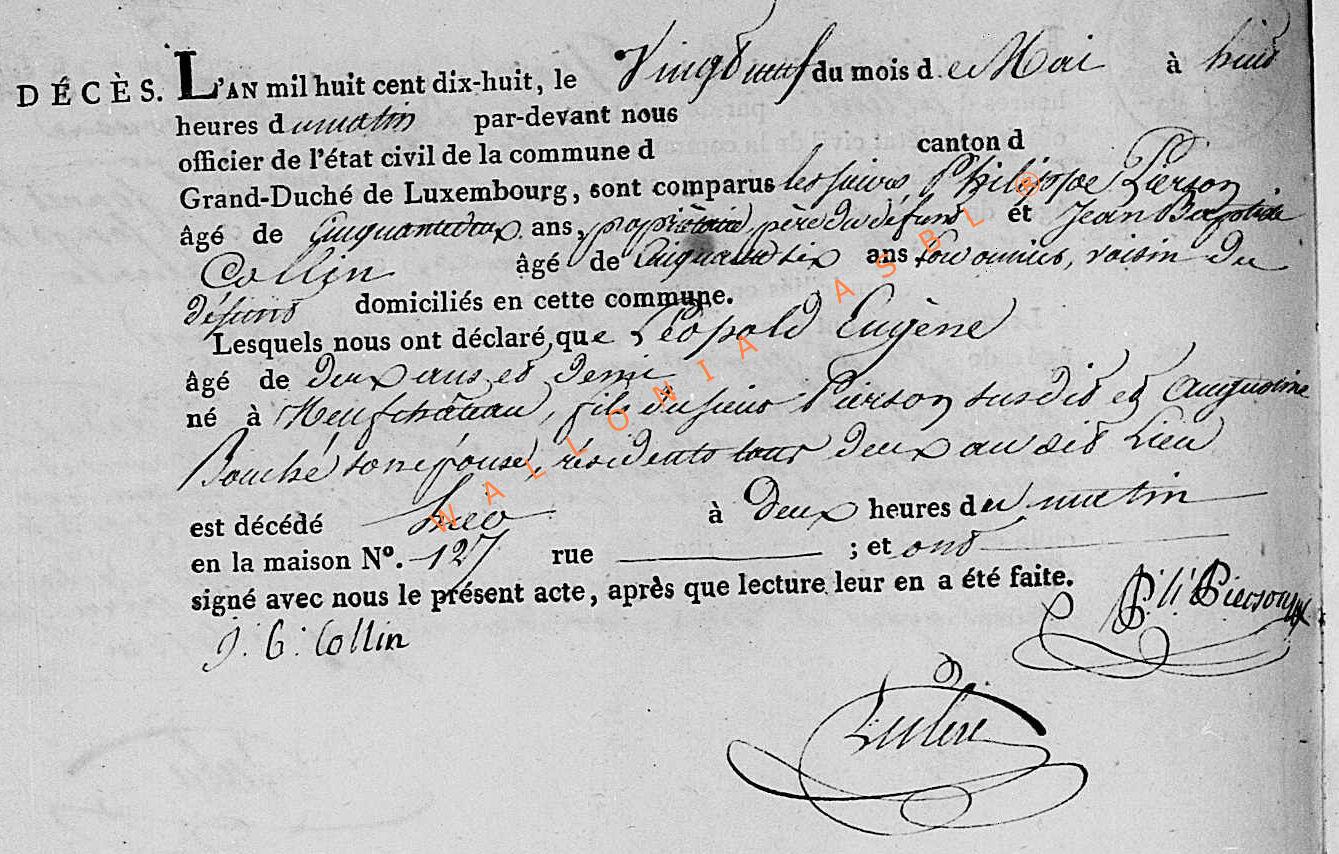 DÉCÈS. L'AN mil huit cent dix-huit, le Vingt neuf du mois de Mai à huit
heures du matin par-devant nous
officier de l'état civil de la commune d canton d
Grand-Duché de Luxembourg, sont comparus les sieurs Philippe Pierson
âgé de Cinquante deux ans, propriétaire, père du défunt et Jean Baptiste
Collin âgé de Cinquante six ans, voisin du
défunt domiciliés en cette commune.
Lesquels nous ont déclaré, que Léopold Eugène
âgé de deux ans et demi
né à Neufchâteau, fils du sieur Pierson susdit et Augustine
Bouché son épouse, résidents tous deux au dit Lieu
est décédé hier à deux heures du matin
en la maison Nº. 127 rue ; et ont
signé avec nous le présent acte, après que lecture leur en a été faite.
J. B. Collin
Ph. Pierson
WALLONIA ASBL ®